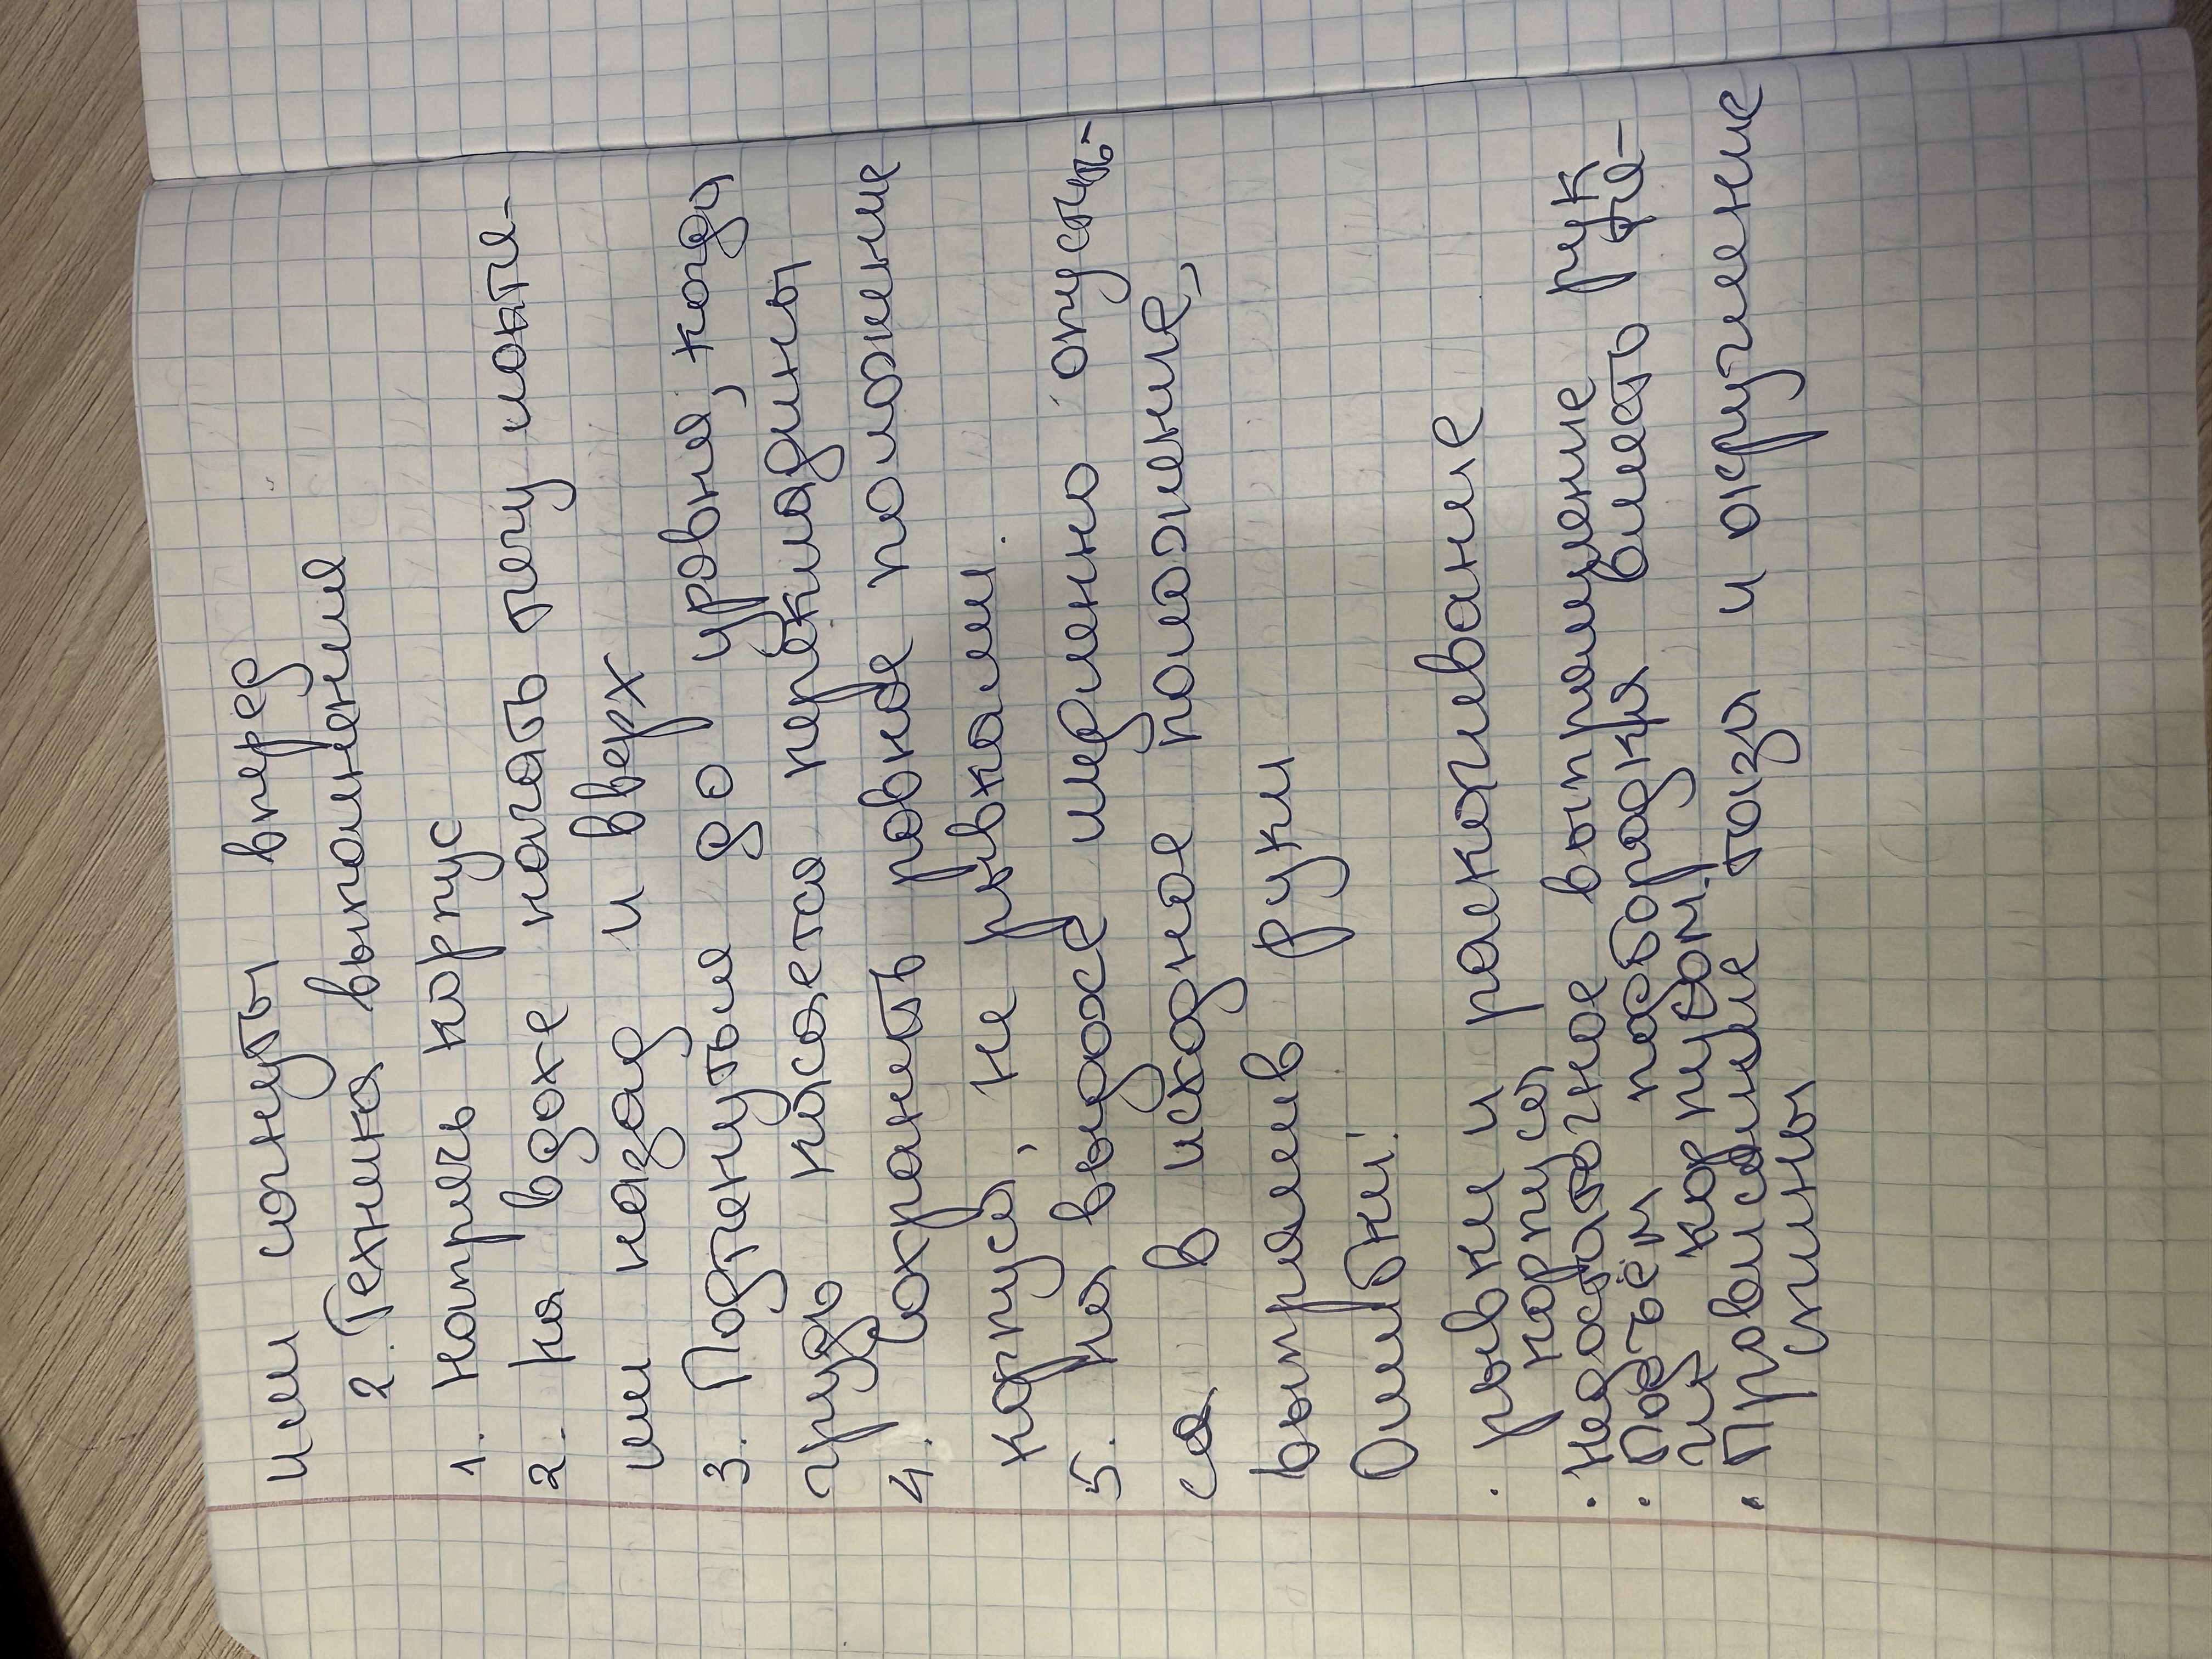 или согнуты вперед
2. Техника выполнения
1. напречь корпус
2. на вдохе начать тягу локтя-
ми назад и вверх
3. Подтянутся до уровня, когда
грудь касается перекладины
4. Сохранить ровное положение
корпуса, не рывками.
5. на выдохе медленно опусть-
ся в исходное положение,
выпрямив руки
Ошибки:
· рывки и раскачивание
корпуса
· недостаточное выпрямление рук
· Подъём подбородка вместо тя-
ги корпусом.
· Провисание таза и округление
спины